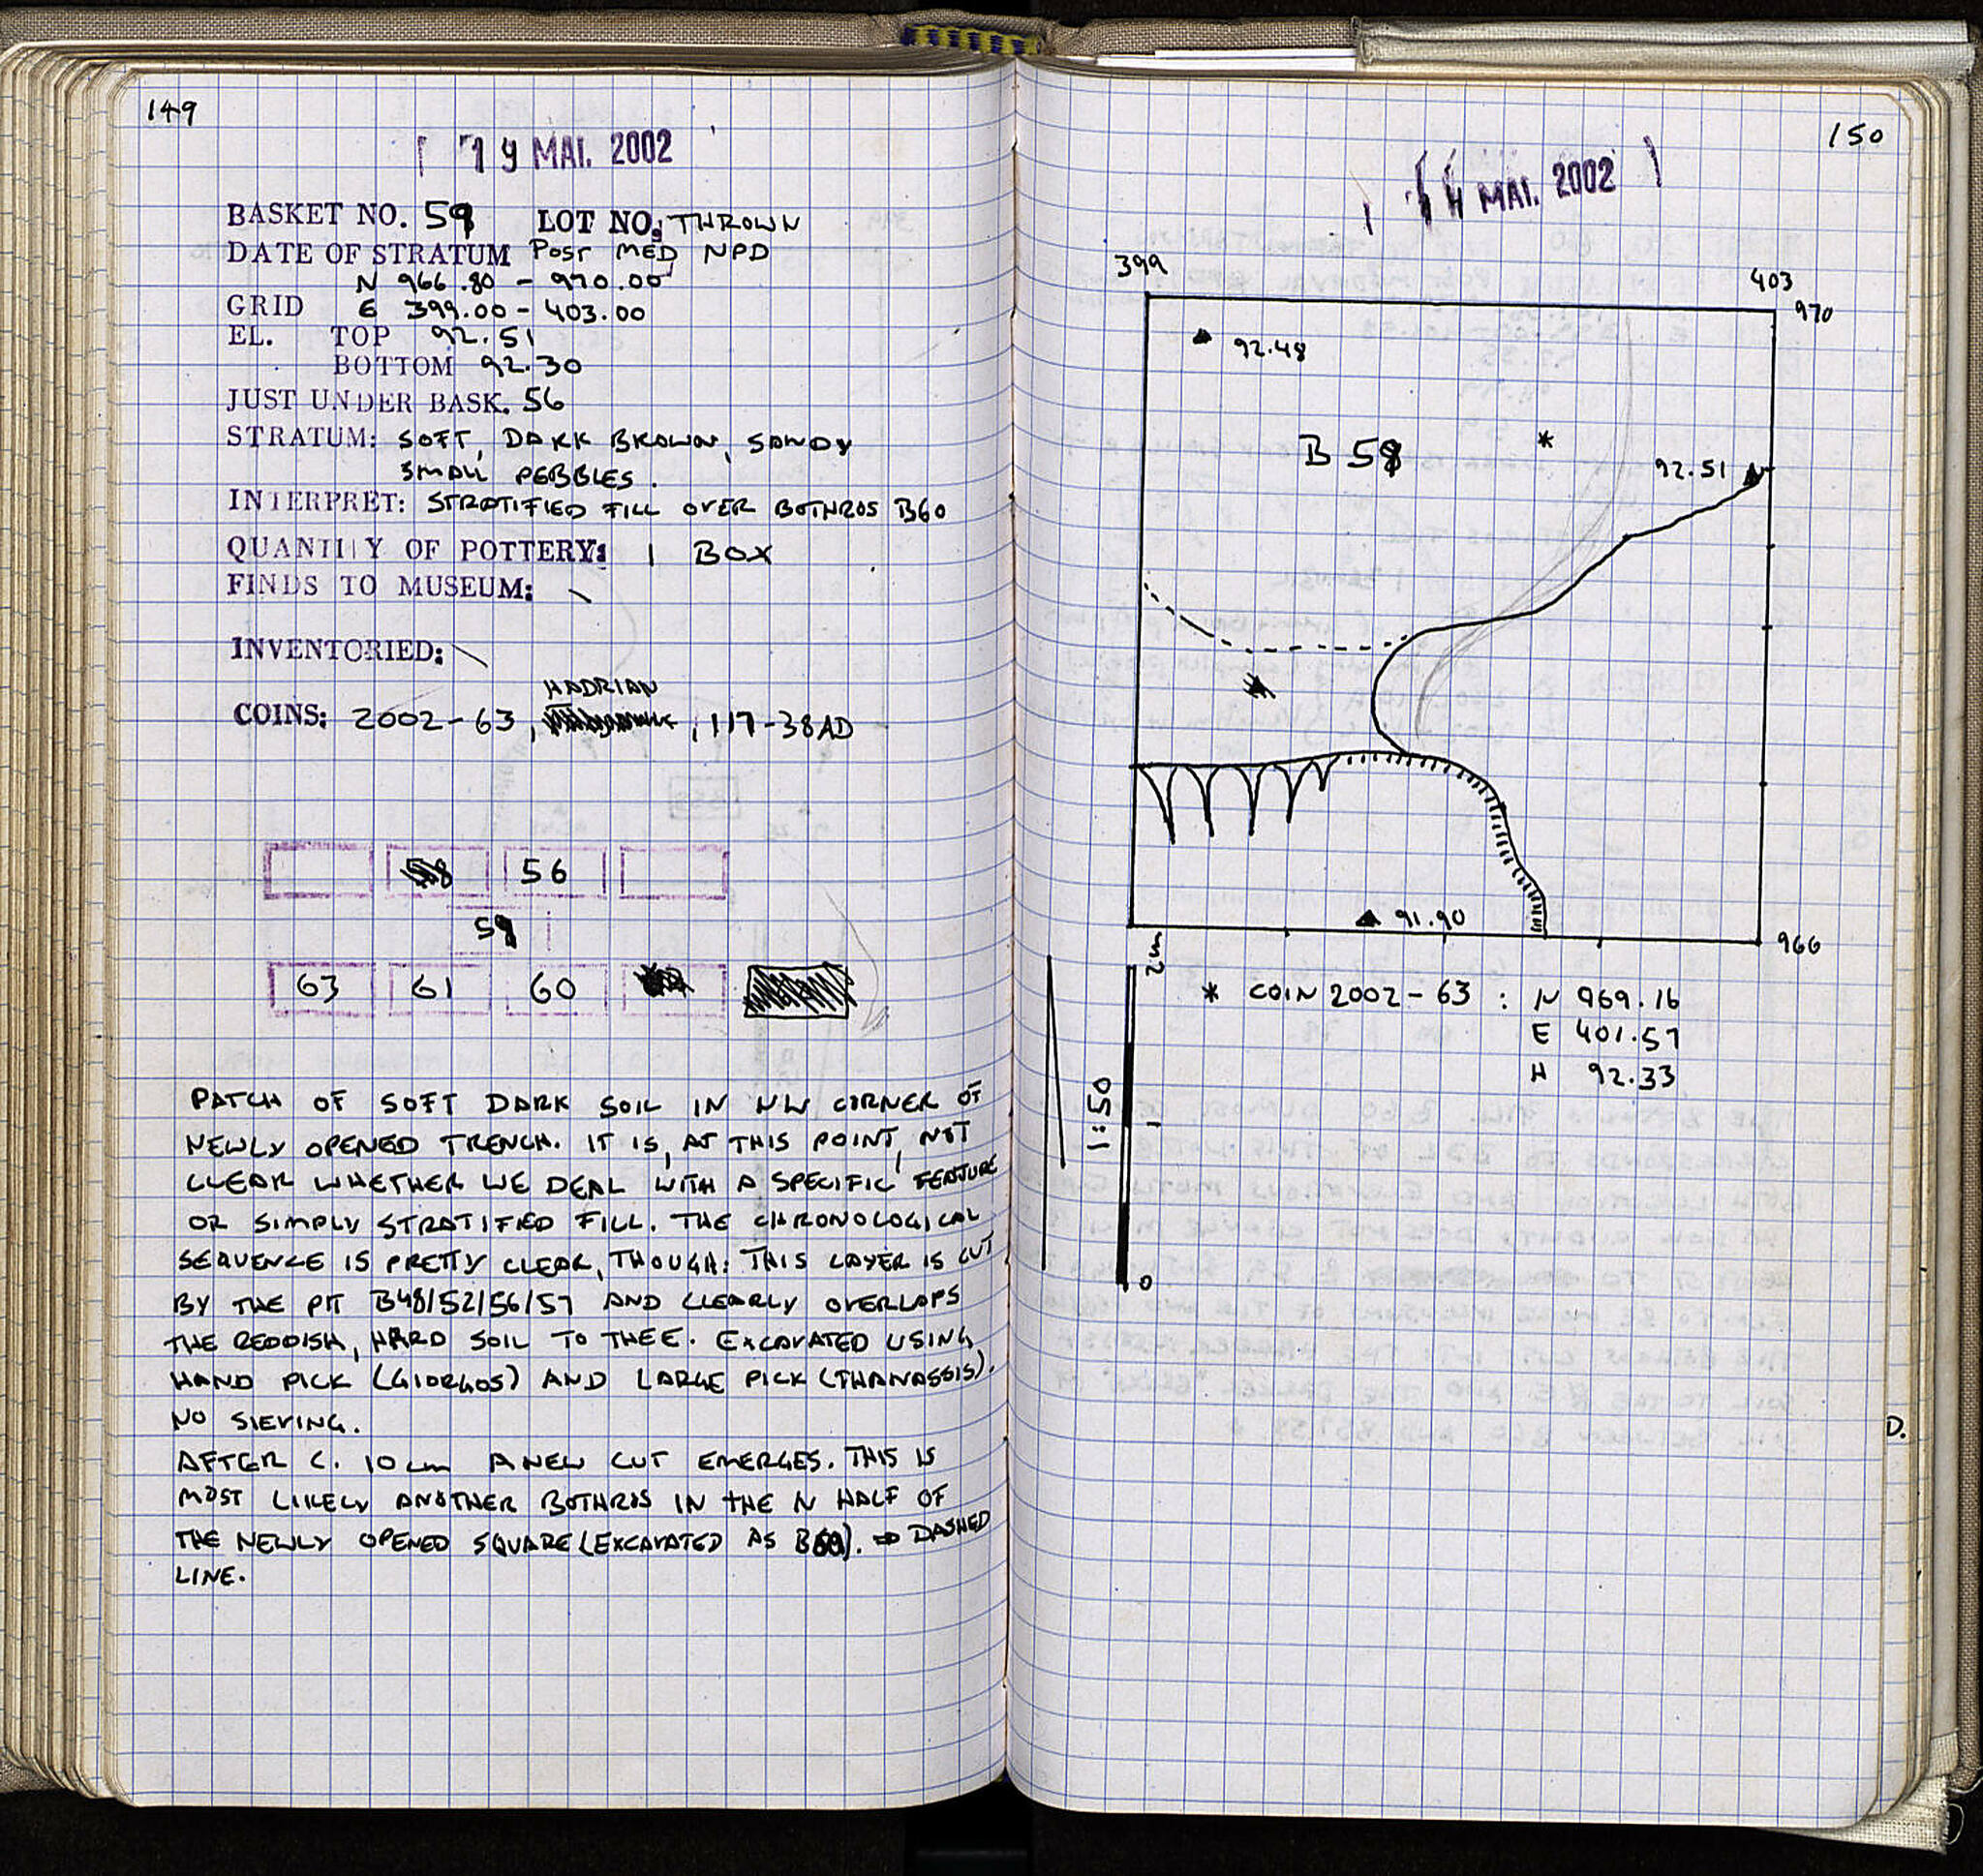 149
19 MAI. 2002
BASKET NO. 59 LOT NO: THROWN
DATE OF STRATUM POST MED NPD
N 966.80 - 970.00
GRID E 399.00 - 403.00
EL. TOP 92.51
BOTTOM 92.30
JUST UNDER BASK. 56
STRATUM: SOFT, DARK BROWN, SANDY
SMALL PEBBLES.
INTERPRET: STRATIFIED FILL OVER BOTHROS B60
QUANTITY OF POTTERY: 1 BOX
FINDS TO MUSEUM: \
INVENTORIED: \
HADRIAN
COINS: 2002-63, , 117-38AD
58 56
59
63 61 60
PATCH OF SOFT DARK SOIL IN NW CORNER OF
NEWLY OPENED TRENCH. IT IS, AT THIS POINT, NOT
CLEAR WHETHER WE DEAL WITH A SPECIFIC FEATURE
OR SIMPLY STRATIFIED FILL. THE CHRONOLOGICAL
SEQUENCE IS PRETTY CLEAR, THOUGH: THIS LAYER IS CUT
BY THE PIT B48/52/56/57 AND CLEARLY OVERLAPS
THE REDDISH, HARD SOIL TO THE E. EXCAVATED USING
HAND PICK (GIORGOS) AND LARGE PICK (THANASSIS).
NO SIEVING.
AFTER C. 10 cm A NEW CUT EMERGES. THIS IS
MOST LIKELY ANOTHER BOTHROS IN THE N HALF OF
THE NEWLY OPENED SQUARE (EXCAVATED AS B60). ⇒ DASHED
LINE.
150
MAI. 2002
399
403
970
92.48
B 59
*
92.51
91.90
966
2m
* COIN 2002-63 : N 969.16
E 401.57
H 92.33
1:50
1
0
D.